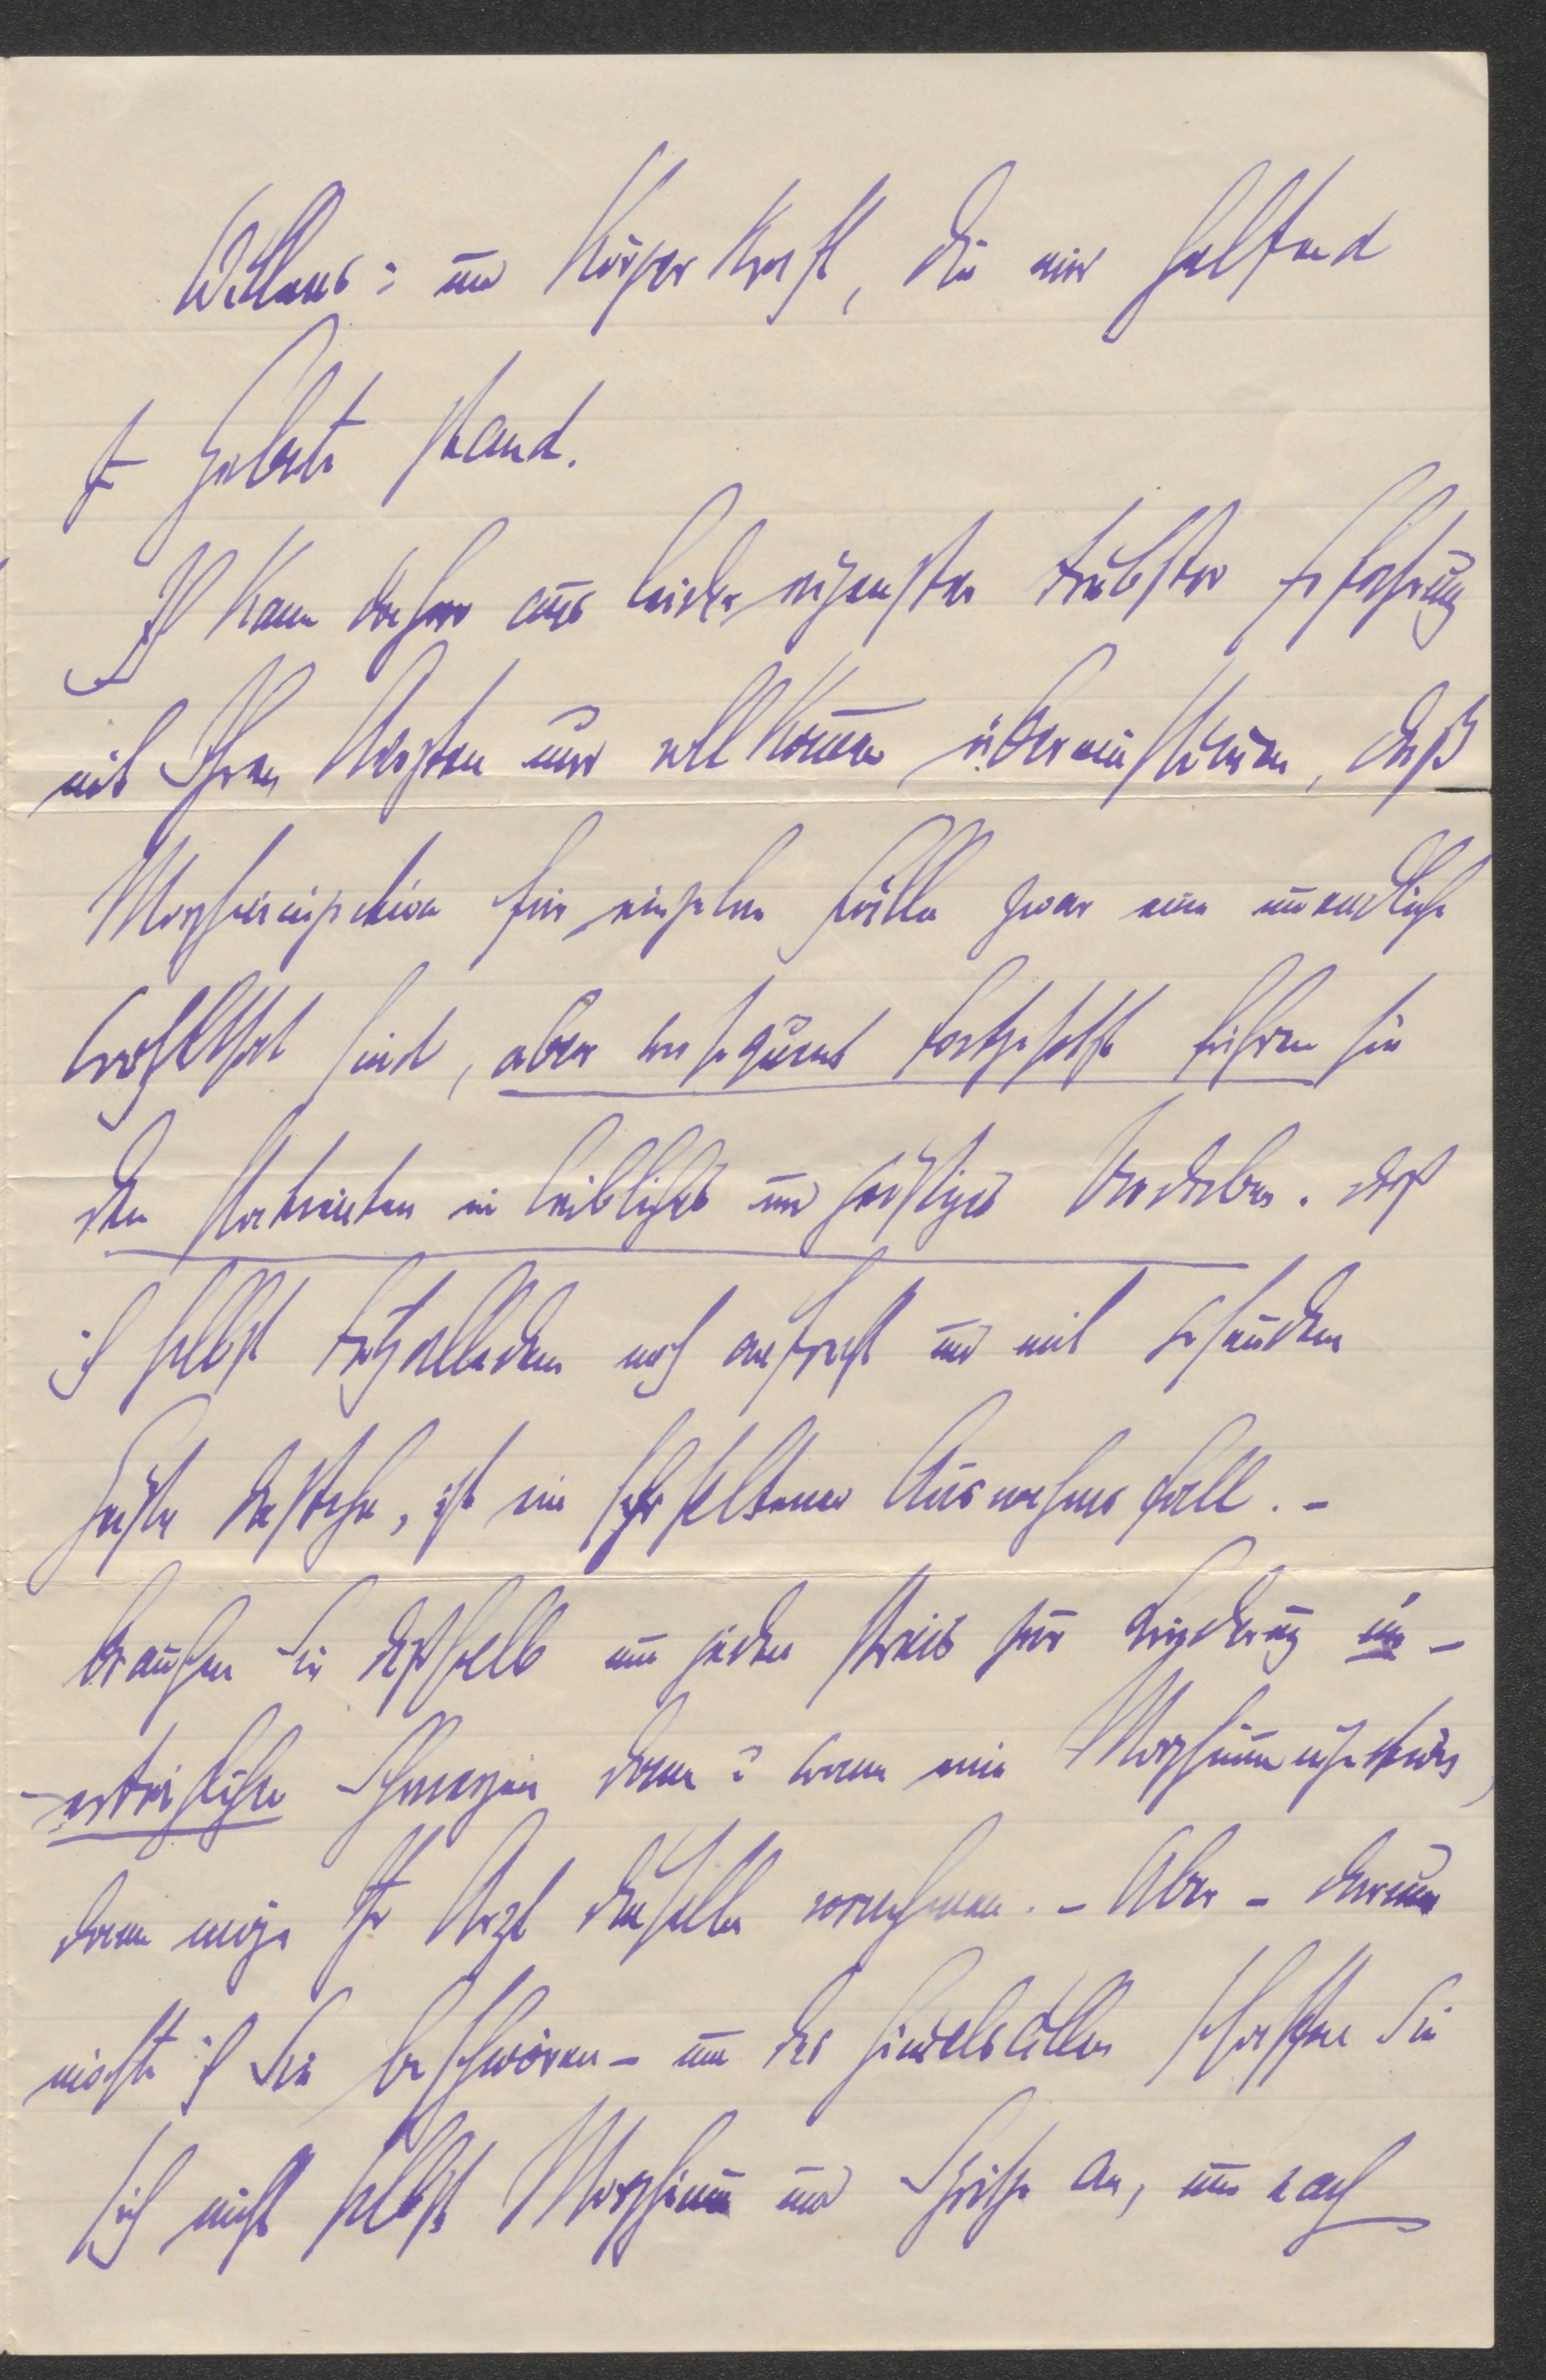 Willens- und Körperkraft, die mir helfend
z Gebote stand.
Ich kann daher aus leider eigenster trübster Erfahrung
mit Ihren Aerzten nur vollkomen übereinstimen, daß
Morphiuminjectionen für einzelne Fälle zwar eine unendliche
Wohlthat sind, aber consequent fortgesetzt führen sie
den Patienten in leibliches und geistiges Verderben. Daß
ich selbst trotz alledem noch aufrecht und mit gesundem
Geiste dastehe, ist ein sehr seltener Ausnahmsfall. -
Brauchen Sie deßhalb um jeden Preis zur Linderung un-
-erträglicher Schmerzen dann & wann eine Morphiuminjection,
dann möge Ihr Arzt dieselbe vornehmen. - Aber - darum
möchte ich Sie beschwören - um des Himelswillen schaffen Sie
sich nicht selbst Morphium und Spritze an, um nach